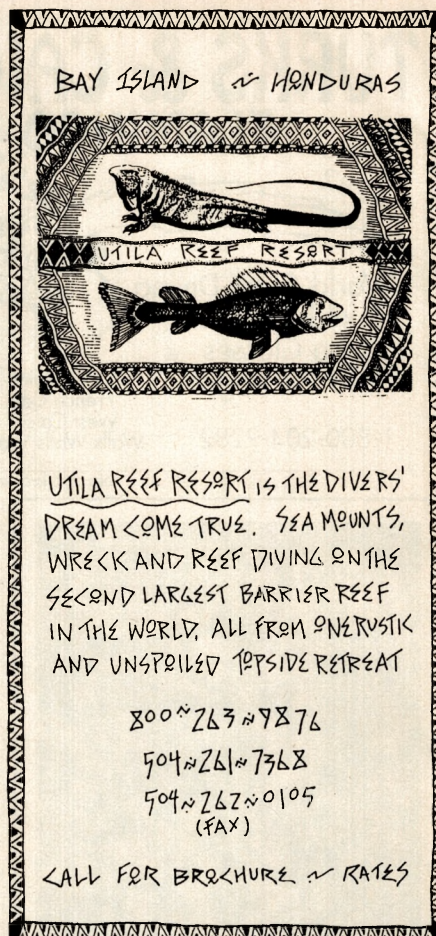 BAY ISLAND ~ HONDURAS
UTILA REEF RESORT
UTILA REEF RESORT IS THE DIVERS'
DREAM COME TRUE. SEA MOUNTS,
WRECK AND REEF DIVING ON THE
SECOND LARGEST BARRIER REEF
IN THE WORLD, ALL FROM ONE RUSTIC
AND UNSPOILED TOPSIDE RETREAT
800~263~9876
504~261~7368
504~262~0105
(FAX)
CALL FOR BROCHURE ~ RATES